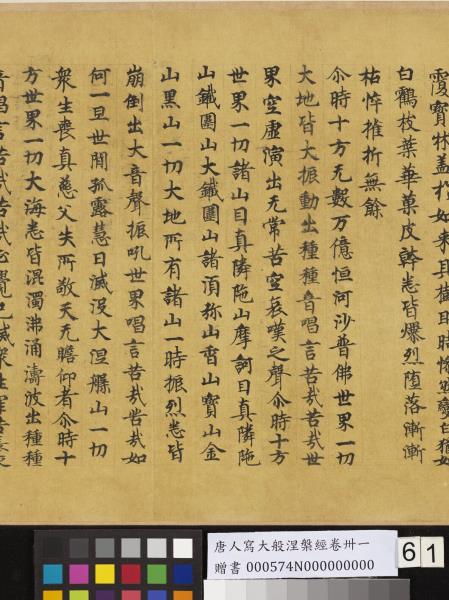 覆寶牀蓋於如來其樹即時慘然變白猶如
白鶴枝葉華菓皮幹悉皆爆烈堕落漸漸
枯悴摧折無餘
尒時十方无數万億恒河沙普佛世界一切
大地皆大振動出種種音唱言苦㦲苦㦲世
界空虛演出无常苦空哀嘆之聲尒時十方
世界一切諸山目真隣陁山摩訶目真隣陁
山鐵圍山大鐵圍山諸湏弥山香山寶山金
山黑山一切大地所有諸山一時振烈悉皆
崩倒出大音聲振吼世界唱言苦㦲苦㦲如
何一旦世間孤露慧日滅没大涅槃山一切
衆生喪真慈父失所敬天无瞻仰者尒時十
方世界一切大海悉皆混濁沸涌濤波出種種
音唱言苦㦲苦㦲正覺已滅衆生罪苦長夜
唐人寫大般涅槃經卷卅一
贈書 000574N000000000
61